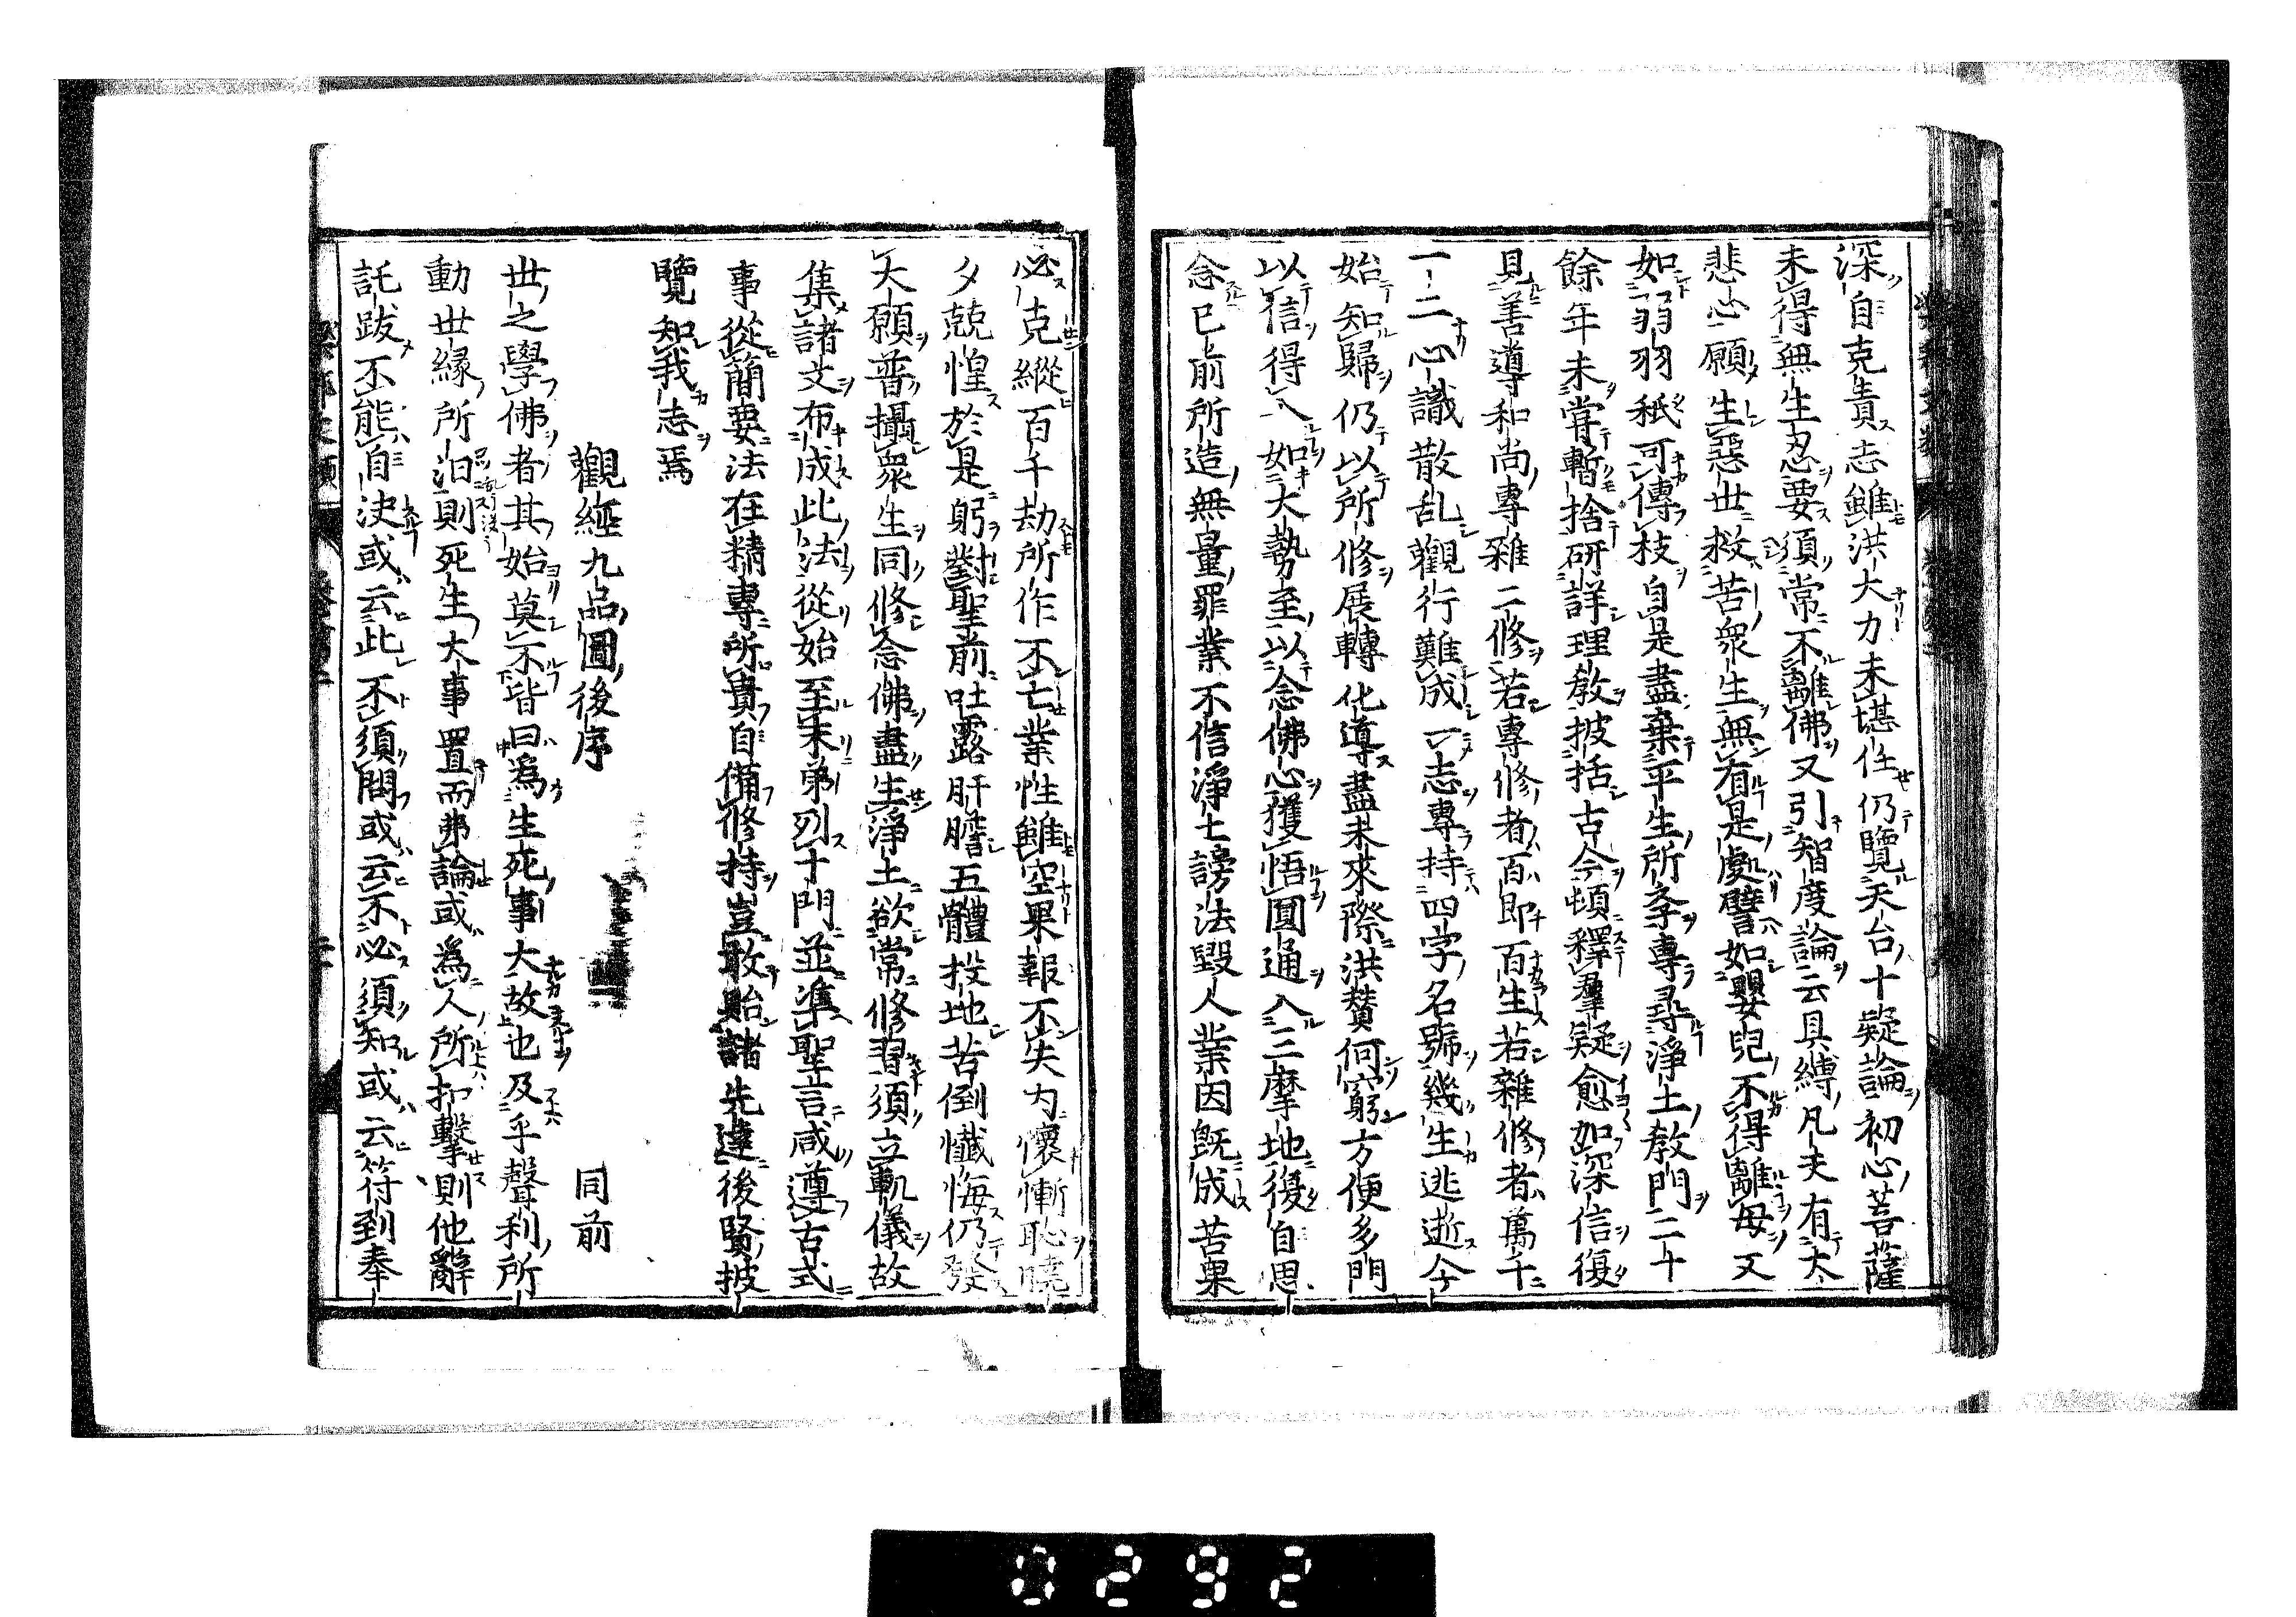 深自克責志雖洪大力未堪任仍覽天台十疑論初心菩薩
未得無生忍要須常不離佛又引智度論云具縛凡夫有大
悲心願生惡世救苦衆生無有是處譬如嬰兒不得離母又
如弱羽秖可傳枝自是盡棄平生所孝專尋淨土敎門二十
餘年未甞暫捨研詳理敎披括古今頓釋羣疑愈加深信復
見善導和尚專雜二修若專修者百即百生若雜修者萬千
一二心識散乱觀行難成一志專持四字名號幾生逃逝今
始知歸仍以所修展轉化導盡未來際洪賛何窮方便多門
以信得入如大勢至以念佛心獲悟圓通入三摩地復自思
念已前所造無量罪業不信淨土謗法毀人業因旣成苦果
必克縱百千劫所作不亡業性雖空果報不失内懷慚恥曉
夕兢惶於是躬對聖前吐露肝膽五體投地苦到懺悔仍發
大願普攝衆生同修念佛盡生淨土欲常修習須立軌儀故
集諸文布成此法從始至末第列十門並準聖言咸遵古式
事從簡要法在精專所貴自備修持豈敢貽諸先達後賢披
覽知我志焉
觀經九品圖後序　同前
世之學佛者其始莫不皆曰爲生死事大故也及乎聲利所
動世緣所汩則死生大事置而弗論或爲人所扣擊則他辭
託跋不能自決或云此不須問或云不必須知或云符到奉
0292